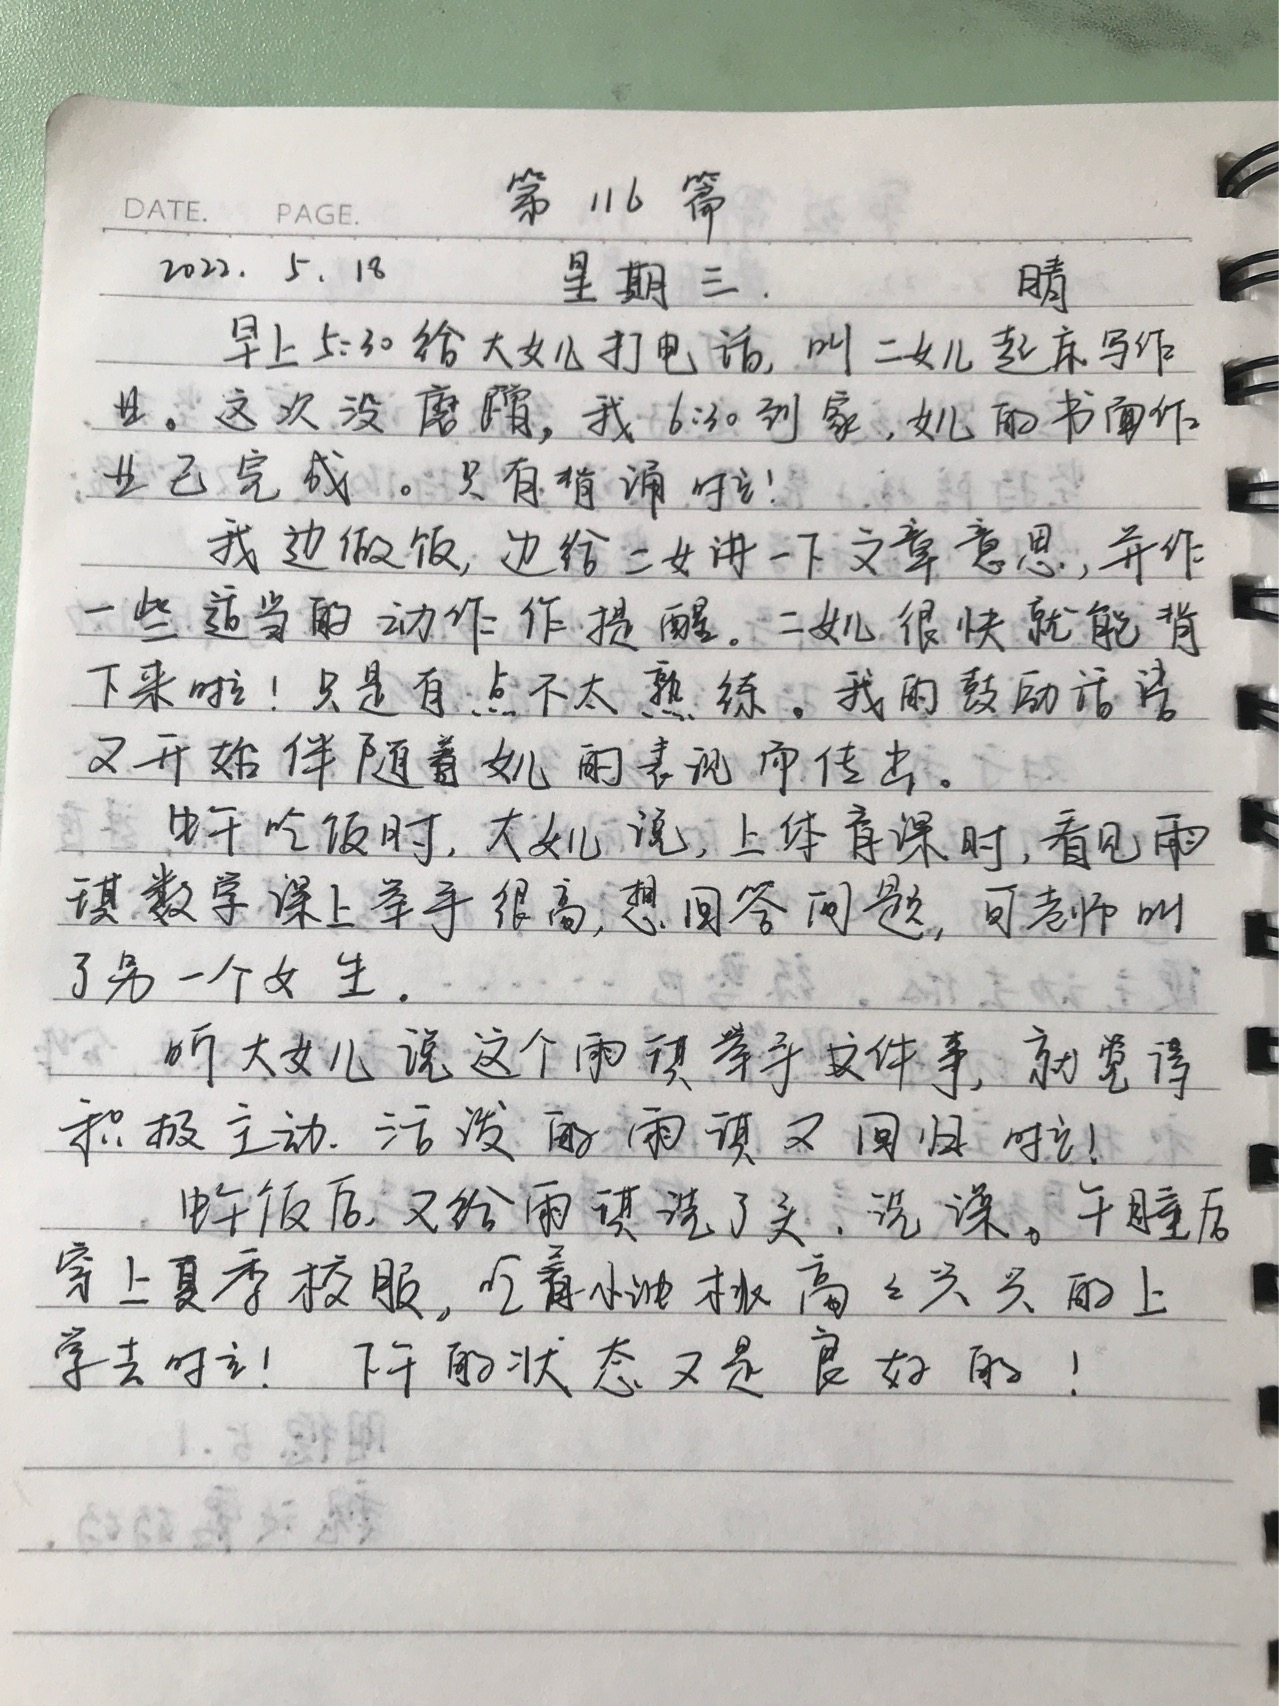 第116篇
DATE. PAGE.
2022. 5. 18 星期三. 晴
早上5:30给大女儿打电话, 叫二女儿起床写作
业。这次没磨蹭, 我6:30到家, 女儿的书面作
业已完成。只有背诵啦!
我边做饭, 边给二女讲一下文章意思, 并作
一些适当的动作作提醒。二女儿很快就能背
下来啦! 只是有点不太熟练。我的鼓励话语
又开始伴随着女儿的表现而传出。
中午吃饭时, 大女儿说, 上体育课时, 看见雨
琪数学课上举手很高, 想回答问题, 可老师叫
了另一个女生.
听大女儿说这个雨琪举手这件事, 就觉得
积极主动. 活泼的雨琪又回归啦!
中午饭后, 又给雨琪洗了头. 洗澡。午睡后
穿上夏季校服, 吃着小油桃高々兴兴的上
学去啦! 下午的状态又是良好的!